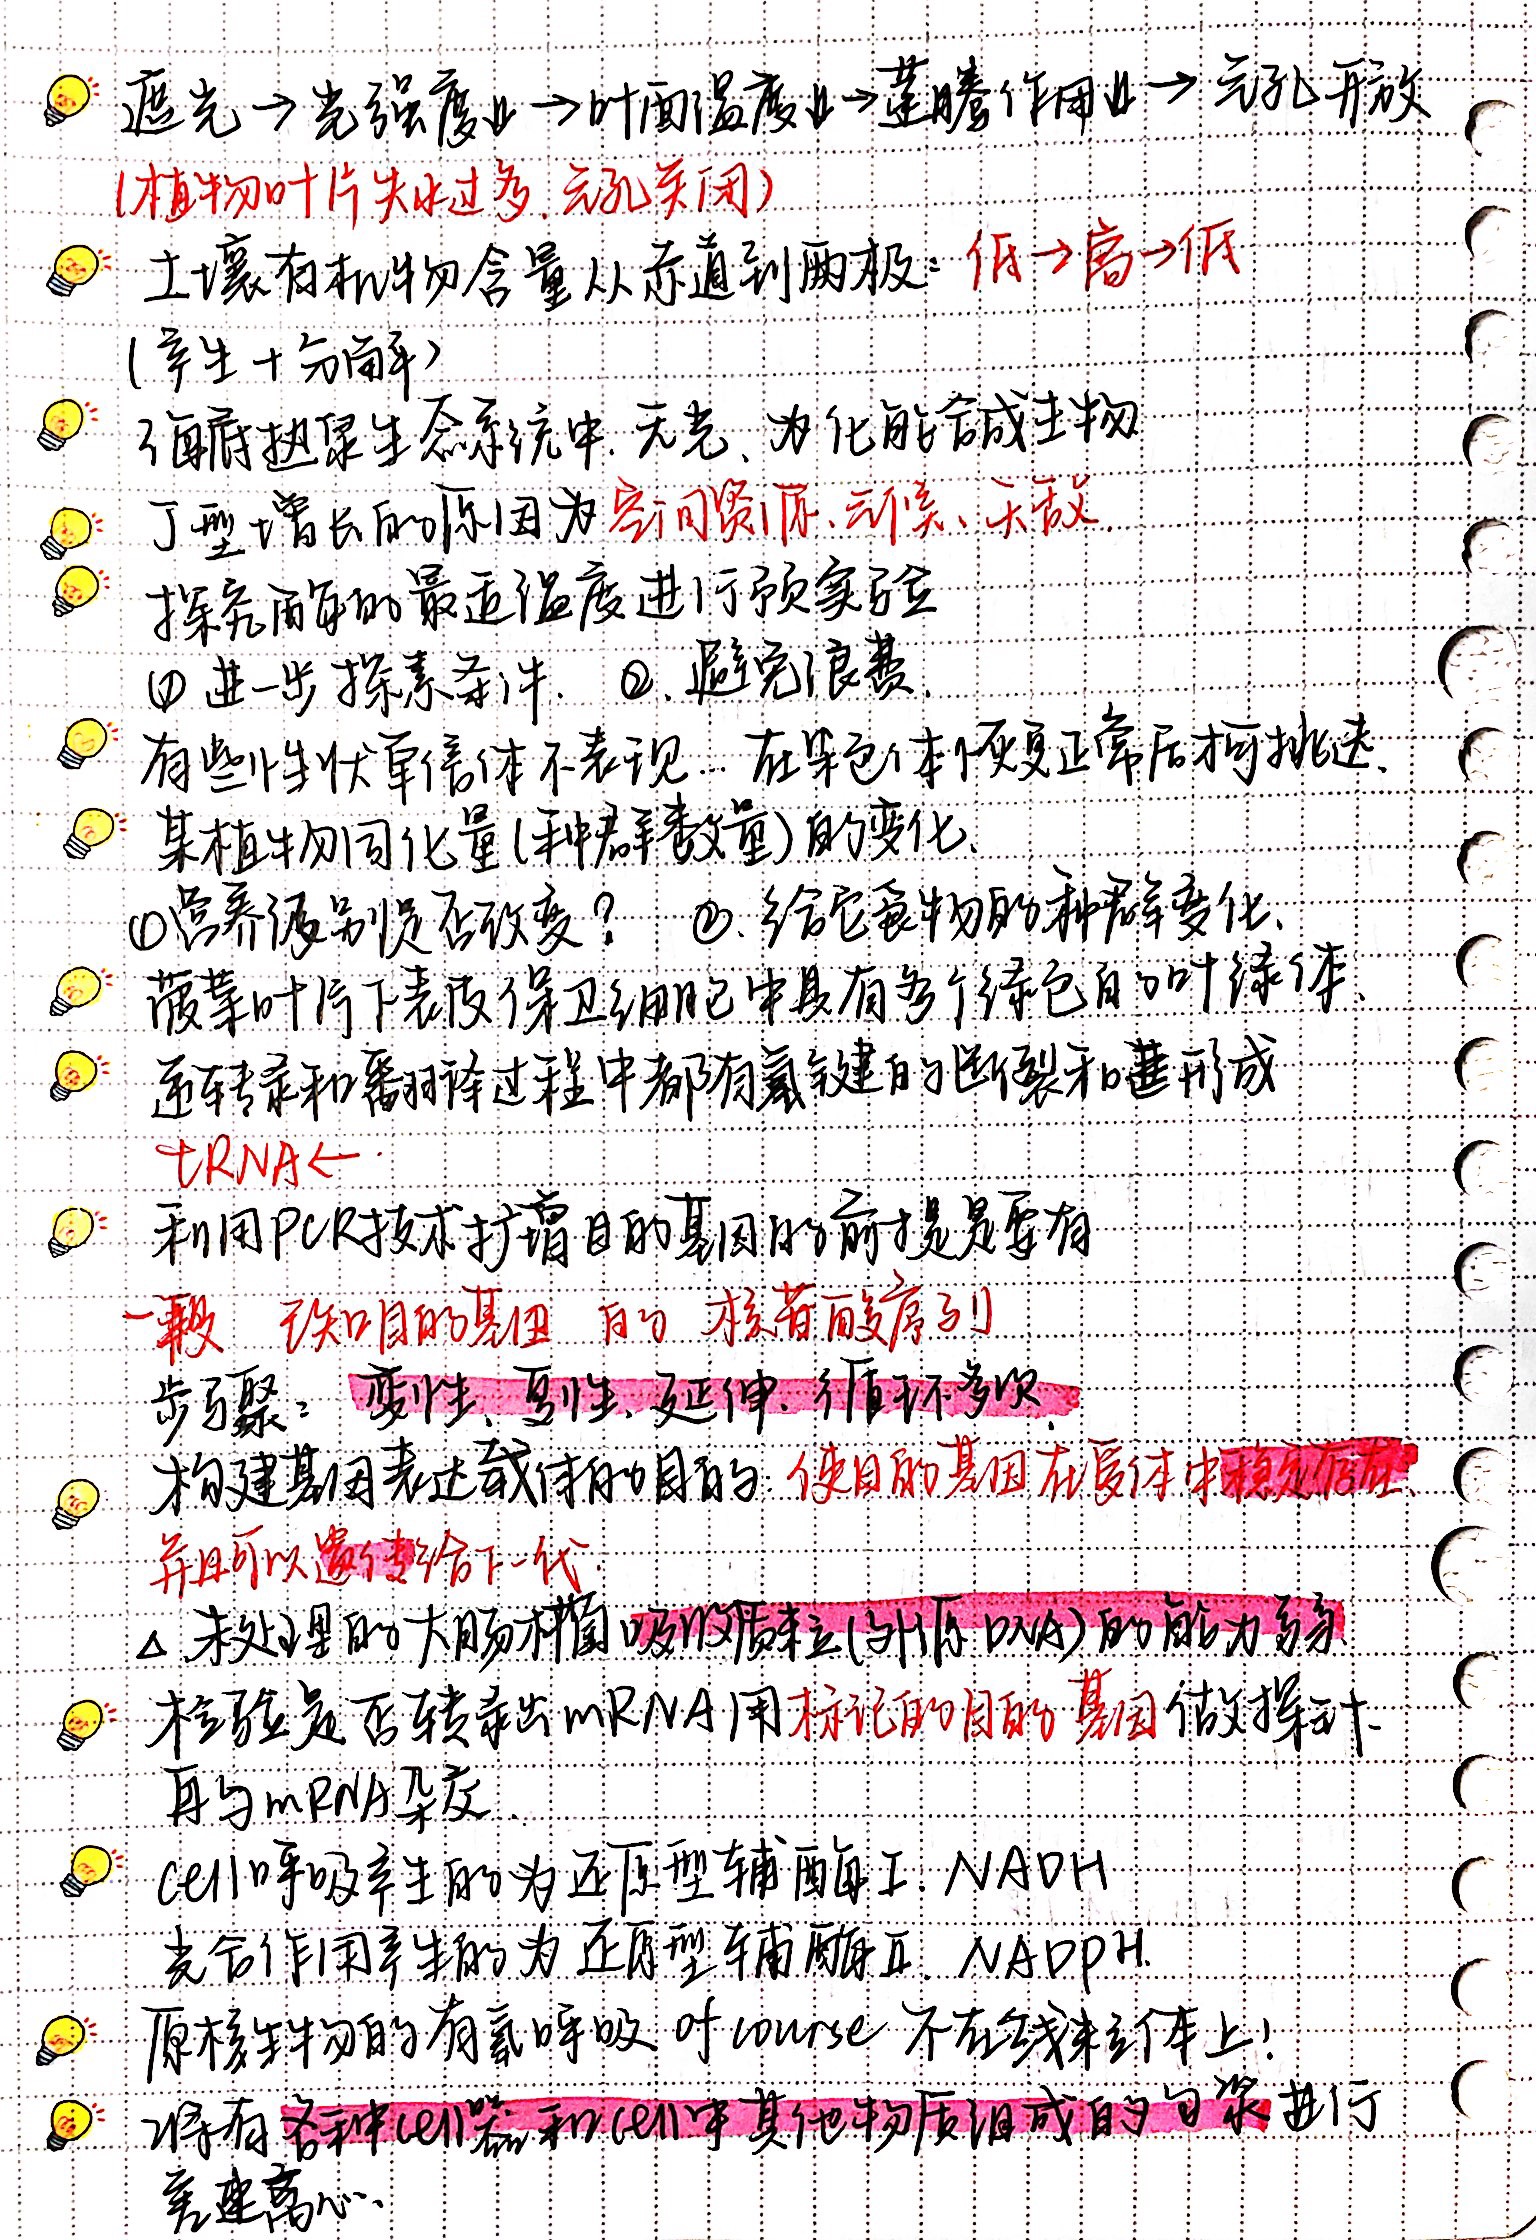 遮光→光强度↓→叶面温度↓→蒸腾作用↓→气孔开放
(植物叶片失水过多、气孔关闭)
土壤有机物含量从赤道到两极：低→高→低
(产生+分解)
海底热泉生态系统中，无光、为化能合成生物
J型增长的原因为空间资源、气候、天敌.
探究酶的最适温度进行预实验
① 进一步探索条件. ②. 避免浪费.
有些性状单倍体不表现... 在染色体恢复正常后才可挑选.
某植物同化量(种群数量)的变化.
①营养级别是否改变？ ②. 给它食物的种群变化.
菠菜叶片下表皮保卫细胞中具有多个绿色的叶绿体.
逆转录和翻译过程中都有氢键的断裂和形成
tRNA←
利用PCR技术扩增目的基因的前提是要有
一段 已知目的基因 的 核苷酸序列
步骤：变性、复性、延伸、循环多次.
构建基因表达载体的目的 使目的基因在受体中稳定存在
并且可以遗传给下一代.
△ 未处理的大肠杆菌吸收质粒(外源DNA)的能力弱
检验是否转录出mRNA用标记的目的基因做探针.
再与mRNA杂交.
cell呼吸产生的为还原型辅酶I. NADH
光合作用产生的为还原型辅酶II. NADPH.
原核生物的有氧呼吸 of course 不在线粒体上！
将有各种cell器和cell中其他物质组成的匀浆进行
差速离心.